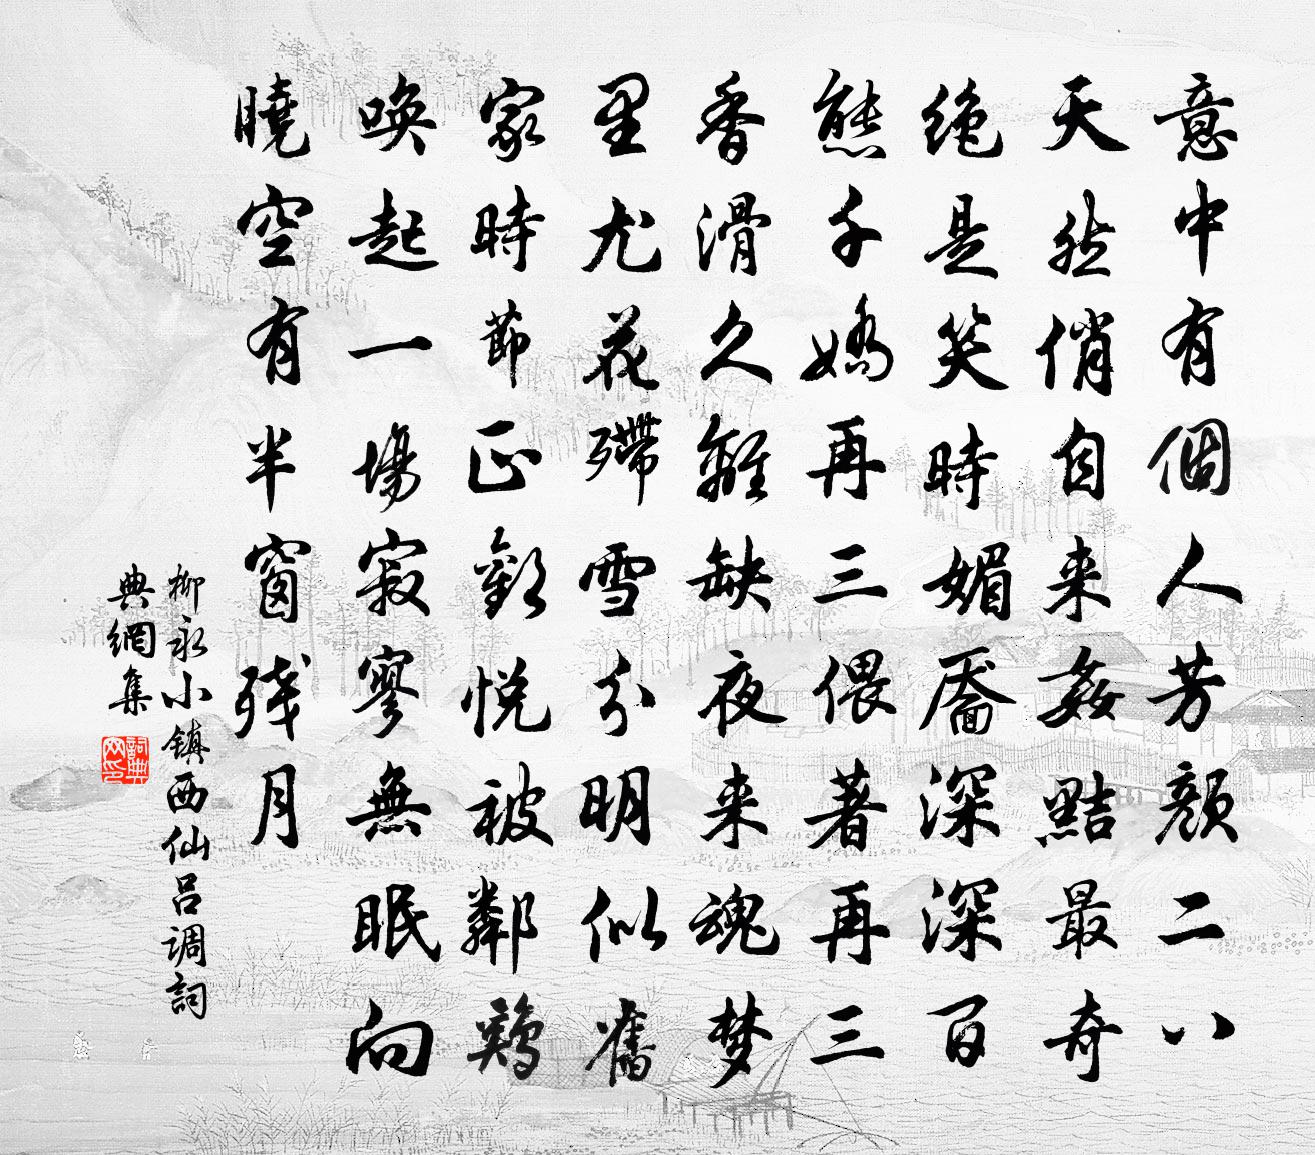 意中有個人芳顏二八
天然俏自来姦黠最奇
绝是笑時媚靨深深百
態千嬌再三偎著再三
香滑久離缺夜来魂梦
里尤花殢雪分明似舊
家時節正歡悅被鄰鷄
唤起一場寂寥無眠向
曉空有半窗残月
柳永小镇西仙吕調詞
典網集
詞典网印